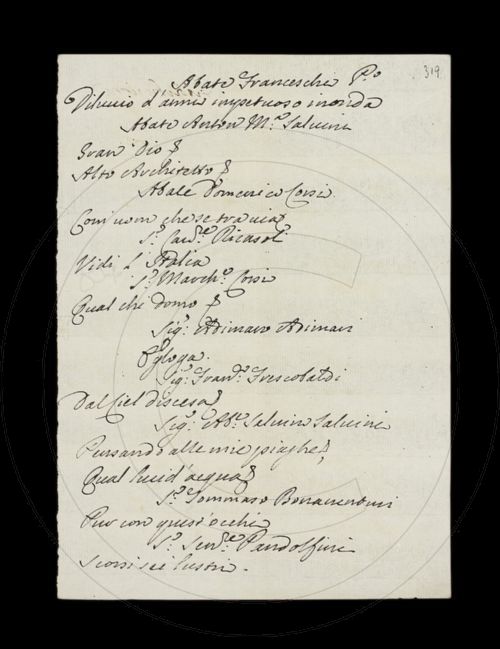 Abate Franceschi P.º
319
Diluvio d'armi impetuoso inonda
Abate Anton M.ª Salvini
Gran Dio
Alto Architetto
Abate Domenico Corsi
Com'uom che
S.r Cav.re Ricasoli
Vidi L'Italia
S.r March.e Corsi
Qual che
Sig.r Adimaro Adimari
Egloga.
Sig.r Fran.co Frescobaldi
Dal Ciel discesa
Sig.r Ab.e Salvino Salvini
Pensando alle mie piaghe
Qual d'acqua
S.r Tommaso Bonaventuri
Pur con quest'occhi
S.r Sen.re Pandolfini
Scorsi sei lustri.